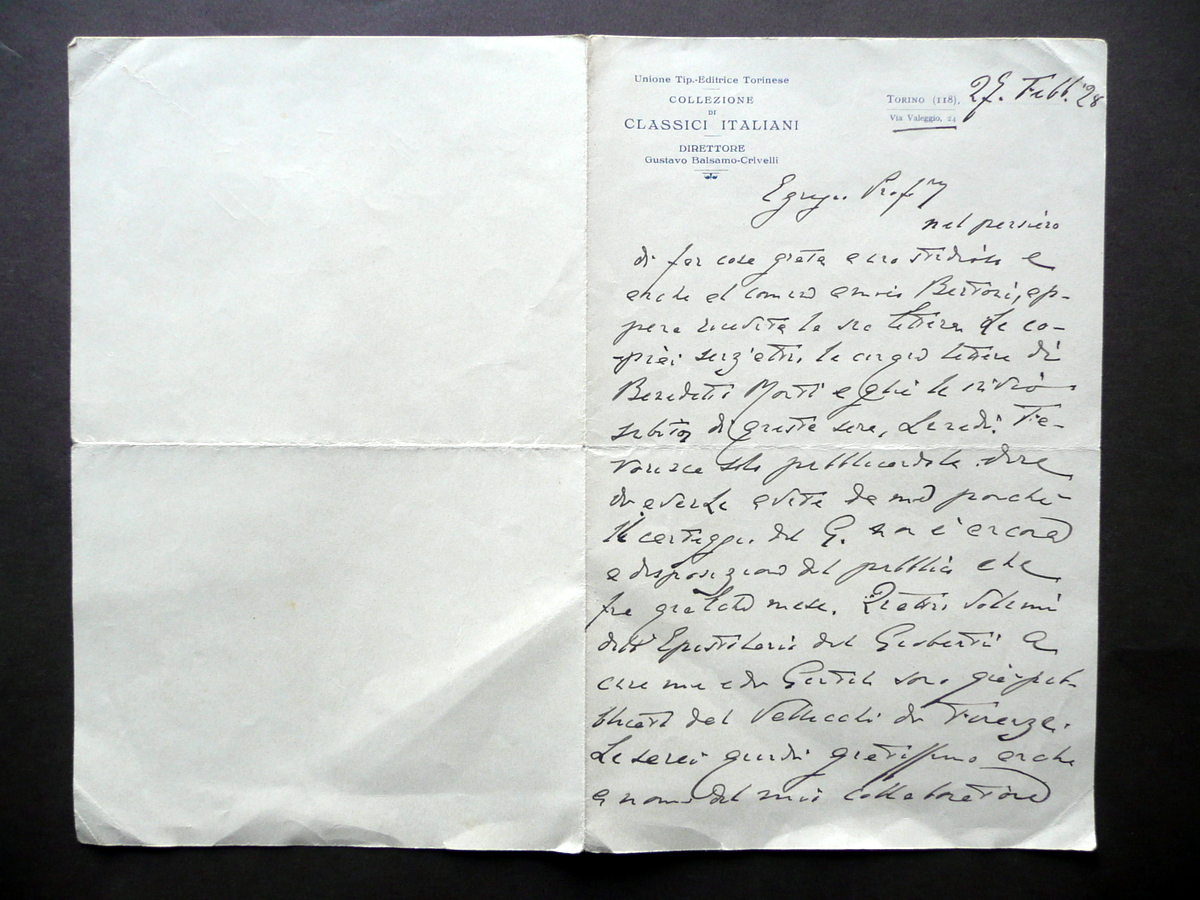 Unione Tip.-Editrice Torinese
COLLEZIONE
DI
CLASSICI ITALIANI
DIRETTORE
Gustavo Balsamo-Crivelli
TORINO (118), 27. Febb. '28
Via Valeggio, 24
Egregio Prof.
nel pensiero
di far cosa grata a uno studioso e
anche al comune amico Bertoni, ap-
pena ricevuta la sua lettera le co-
piai senz'altro le cinque lettere di
Benedetto Monti e gliele invio
subito di questa sera,
solo pubblicandole dire
di averle avute da me perché
il carteggio del G. non è ancora
a disposizione del pubblico che
fra qualche mese. Quattro volumi
dell'Epistolario del Gioberti a
cura mia e di Gentile sono già pub-
blicati dal Vallecchi di Firenze.
Le sarei quindi gratissimo anche
a nome del mio collaboratore